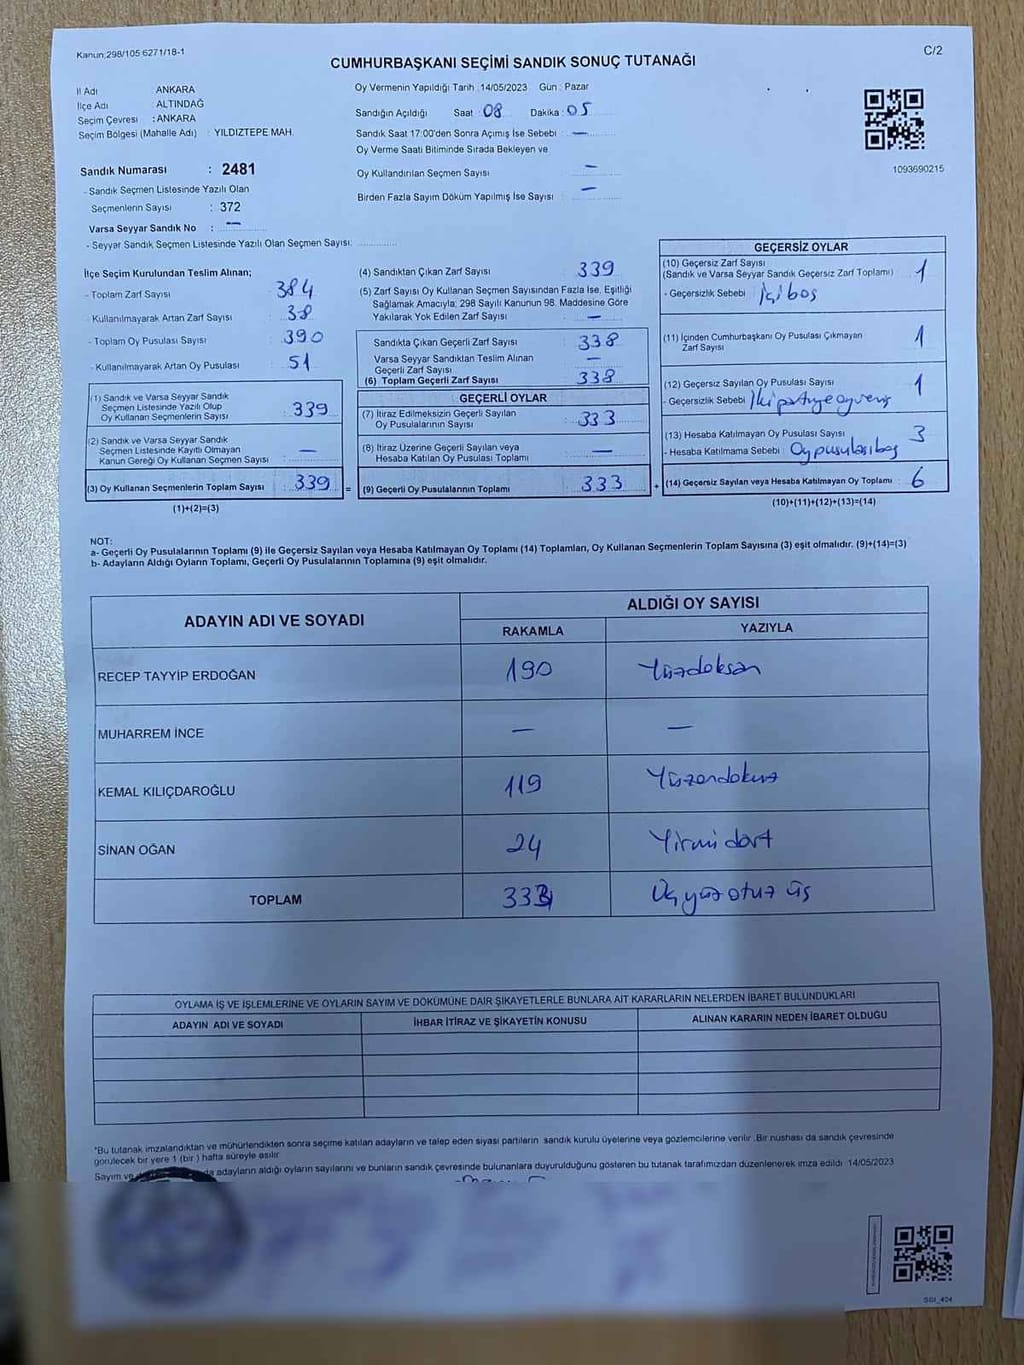 Kanun:298/105 6271/18-1
C/2
CUMHURBAŞKANI SEÇİMİ SANDIK SONUÇ TUTANAĞI
İl Adı ANKARA
İlçe Adı ALTINDAĞ
Seçim Çevresi : ANKARA
Seçim Bölgesi (Mahalle Adı) : YILDIZTEPE MAH.
Sandık Numarası : 2481
- Sandık Seçmen Listesinde Yazılı Olan
Seçmenlerin Sayısı : 372
Varsa Seyyar Sandık No : —
- Seyyar Sandık Seçmen Listesinde Yazılı Olan Seçmen Sayısı:
Oy Vermenin Yapıldığı Tarih : 14/05/2023 Gün : Pazar
Sandığın Açıldığı Saat : 08 Dakika : 05
Sandık Saat 17:00'den Sonra Açımış İse Sebebi : —
Oy Verme Saati Bitiminde Sırada Bekleyen ve
Oy Kullandırılan Seçmen Sayısı —
Birden Fazla Sayım Döküm Yapılmış İse Sayısı : —
1093690215
İlçe Seçim Kurulundan Teslim Alınan;
- Toplam Zarf Sayısı : 384
- Kullanılmayarak Artan Zarf Sayısı : 38
- Toplam Oy Pusulası Sayısı : 390
- Kullanılmayarak Artan Oy Pusulası : 51
(1) Sandık ve Varsa Seyyar Sandık
Seçmen Listesinde Yazılı Olup
Oy Kullanan Seçmenlerin Sayısı : 339
(2) Sandık ve Varsa Seyyar Sandık
Seçmen Listesinde Kayıtlı Olmayan
Kanun Gereği Oy Kullanan Seçmen Sayısı : —
(3) Oy Kullanan Seçmenlerin Toplam Sayısı : 339 =
(1)+(2)=(3)
(4) Sandıktan Çıkan Zarf Sayısı : 339
(5) Zarf Sayısı Oy Kullanan Seçmen Sayısından Fazla İse, Eşitliği
Sağlamak Amacıyla; 298 Sayılı Kanunun 98. Maddesine Göre
Yakılarak Yok Edilen Zarf Sayısı : —
Sandıkta Çıkan Geçerli Zarf Sayısı : 338
Varsa Seyyar Sandıktan Teslim Alınan
Geçerli Zarf Sayısı : —
(6) Toplam Geçerli Zarf Sayısı : 338
GEÇERLİ OYLAR
(7) İtiraz Edilmeksizin Geçerli Sayılan
Oy Pusulalarının Sayısı : 333
(8) İtiraz Üzerine Geçerli Sayılan veya
Hesaba Katılan Oy Pusulası Toplamı : —
(9) Geçerli Oy Pusulalarının Toplamı : 333 +
GEÇERSİZ OYLAR
(10) Geçersiz Zarf Sayısı
(Sandık ve Varsa Seyyar Sandık Geçersiz Zarf Toplamı) : 1
- Geçersizlik Sebebi : İçi boş
(11) İçinden Cumhurbaşkanı Oy Pusulası Çıkmayan
Zarf Sayısı : 1
(12) Geçersiz Sayılan Oy Pusulası Sayısı : 1
- Geçersizlik Sebebi : İki partiye oy vermiş
(13) Hesaba Katılmayan Oy Pusulası Sayısı : 3
- Hesaba Katılmama Sebebi : Oy pusulası boş
(14) Geçersiz Sayılan veya Hesaba Katılmayan Oy Toplamı : 6
(10)+(11)+(12)+(13)=(14)
NOT:
a- Geçerli Oy Pusulalarının Toplamı (9) ile Geçersiz Sayılan veya Hesaba Katılmayan Oy Toplamı (14) Toplamları, Oy Kullanan Seçmenlerin Toplam Sayısına (3) eşit olmalıdır. (9)+(14)=(3)
b- Adayların Aldığı Oyların Toplamı, Geçerli Oy Pusulalarının Toplamına (9) eşit olmalıdır.
ADAYIN ADI VE SOYADI
ALDIĞI OY SAYISI
RAKAMLA YAZIYLA
RECEP TAYYİP ERDOĞAN 190 Yüzdoksan
MUHARREM İNCE — —
KEMAL KILIÇDAROĞLU 119 Yüzondokuz
SİNAN OĞAN 24 Yirmi dört
TOPLAM 333 Üçyüz otuz üç
OYLAMA İŞ VE İŞLEMLERİNE VE OYLARIN SAYIM VE DÖKÜMÜNE DAİR ŞİKAYETLERLE BUNLARA AİT KARARLARIN NELERDEN İBARET BULUNDUKLARI
ADAYIN ADI VE SOYADI İHBAR İTİRAZ VE ŞİKAYETİN KONUSU ALINAN KARARIN NEDEN İBARET OLDUĞU
*Bu tutanak imzalandıktan ve mühürlendikten sonra seçime katılan adayların ve talep eden siyasi partilerin sandık kurulu üyelerine veya gözlemcilerine verilir. Bir nüshası da sandık çevresinde
görülecek bir yere 1 (bir) hafta süreyle asılır.
Sayım ve adayların aldığı oyların sayılarını ve bunların sandık çevresinde bulunanlara duyurulduğunu gösteren bu tutanak tarafımızdan düzenlenerek imza edildi. 14/05/2023
SGI_424